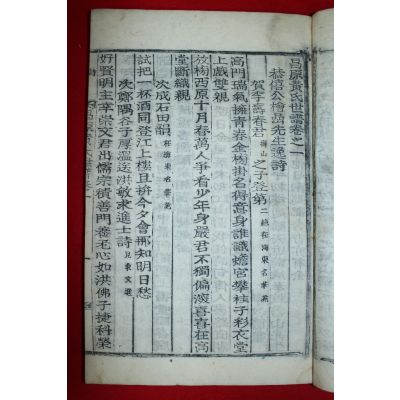 昌原黃氏世譜卷之一
恭僖公檜山先生逸詩
賀李壽春君 之子登第 二絶在海東名華集
高門瑞氣擁青春金榜掛名得意身誰識蟾宮攀桂子彩衣堂
上戲雙親
放榜西原十月春萬人爭看少年身嚴君不獨偏深喜喜在高
堂斷織親
次成石田韻 在海東名華集
試把一杯酒同登江上樓且拚今夕會那知明日愁
次鄭隅谷子厚溫送洪敏求進士詩 見東文選
好賢明主幸崇文君出儒宗積善門養老心如洪佛子捷科榮